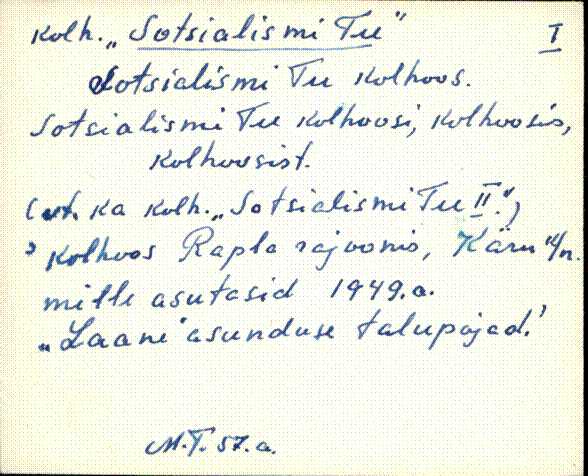 kolh. „Sotsialismi Tu" I
Sotsialismi Tu kolhoos.
Sotsialismi Tu kolhoosi, kolhoosis,
kolhoosist.
(vt. ka kolh. „Sotsialismi Tu II".)
' kolhoos Rapla rajoonis, Käru k/n.
mille asutasid 1949.a.
„Laane" asunduse talupojad.'
M.T. 57.a.